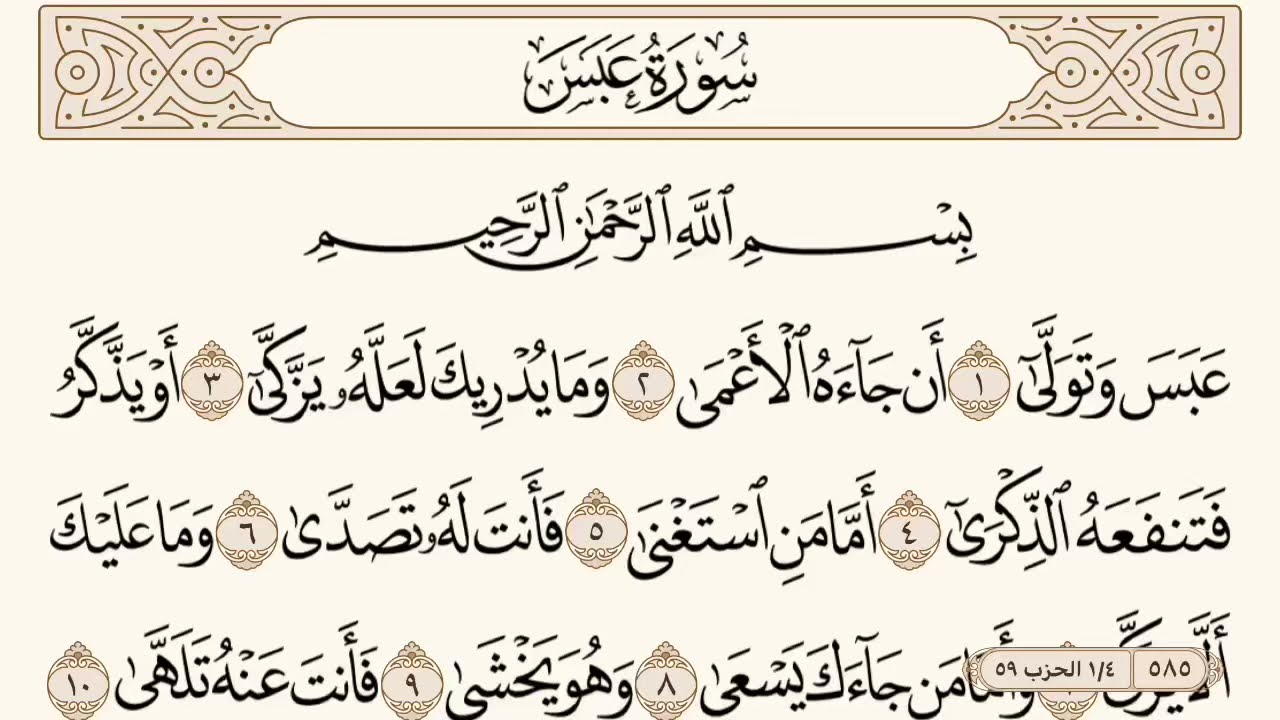 سُورَةُ عَبَسَ
بِسْمِ ٱللَّهِ ٱلرَّحْمَٰنِ ٱلرَّحِيمِ
عَبَسَ وَتَوَلَّىٰٓ ١ أَن جَآءَهُ ٱلْأَعْمَىٰ ٢ وَمَا يُدْرِيكَ لَعَلَّهُۥ يَزَّكَّىٰٓ ٣ أَوْ يَذَّكَّرُ
فَتَنفَعَهُ ٱلذِّكْرَىٰٓ ٤ أَمَّا مَنِ ٱسْتَغْنَىٰ ٥ فَأَنتَ لَهُۥ تَصَدَّىٰ ٦ وَمَا عَلَيْكَ
أَلَّا يَزَّكَّىٰ وَأَمَّا مَن جَآءَكَ يَسْعَىٰ ٨ وَهُوَ يَخْشَىٰ ٩ فَأَنتَ عَنْهُ تَلَهَّىٰ ١٠
٥٨٥ ١/٤ الحزب ٥٩